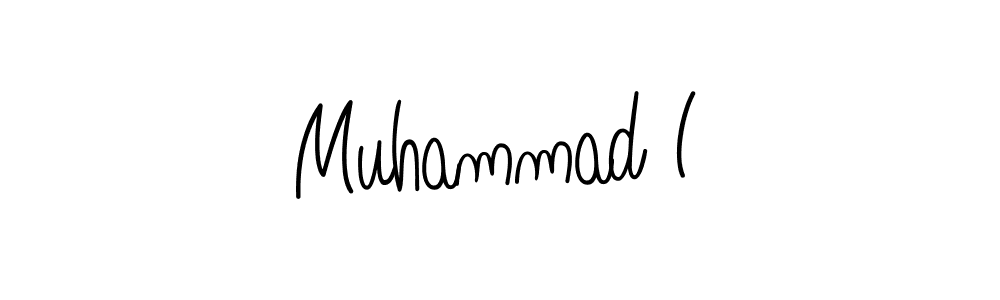 Muhammad I